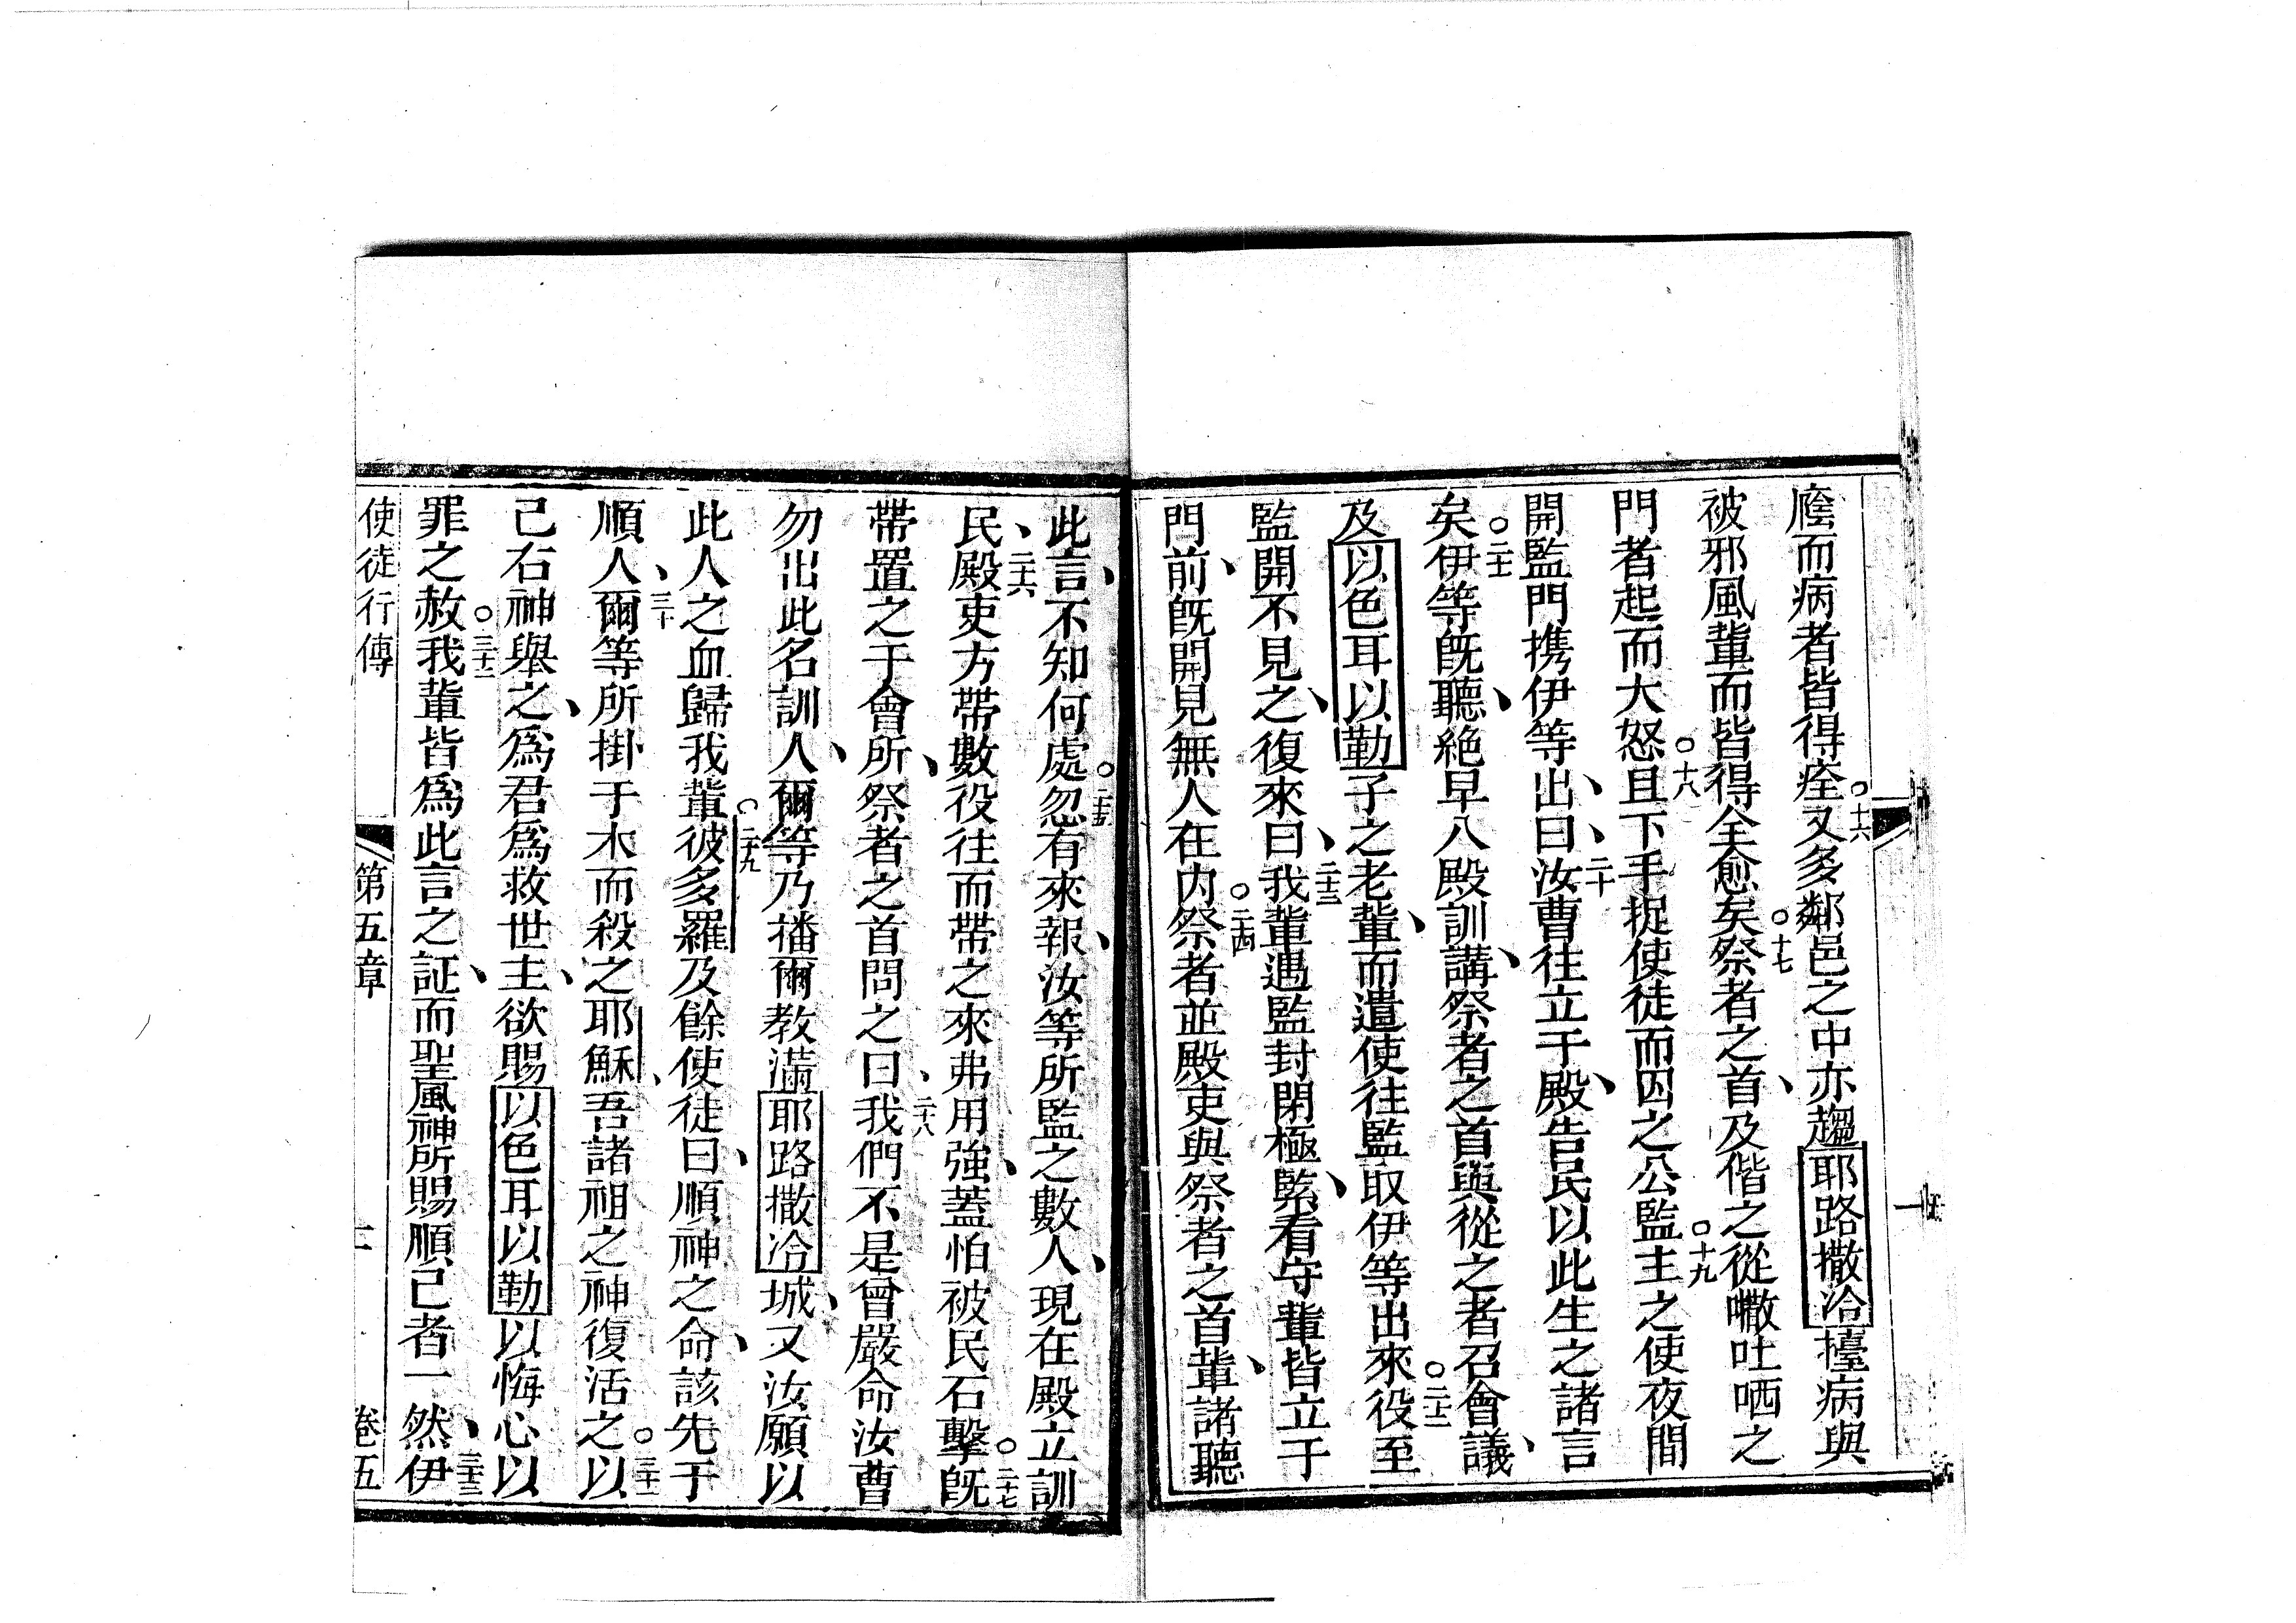 廕而病者皆得痊○十六又多鄰邑之中亦趨耶路撒冾擡病與
被邪風軰而皆得全愈矣○十七祭者之首、及偕之從㘔吐哂之
門者起而大怒○十八且下手捉使徒而囚之公監○十九主之使夜間
開監門携伊等出、曰、二十汝曹往立于殿、告民以此生之諸言
矣○二十一伊等既聽、絶早入殿訓講、祭者之首與從之者召會議、
及以色耳以勒子之老軰、而遣使往監取伊等出來○二十二役至
監開不見之、復來曰、二十三我軰遇監封閉極緊、看守軰皆立于
門前、既開見無人在內○二十四祭者並殿吏與祭者之首軰、諸聽
此言、不知何處○二十五忽有來報、汝等所監之數人、現在殿立訓
民、二十六殿吏方帶數役往而帶之來弗用強、蓋怕被民石擊○二十七既
帶置之于會所、祭者之首問之曰、二十八我們不是曾嚴命汝曹
勿出此名訓人、爾等乃播爾教滿耶路撒冾城、又汝願以
此人之血歸我軰○二十九彼多羅及餘使徒曰、順神之命、該先于
順人、三十爾等所掛于木而殺之耶穌、吾諸祖之神復活之○三十一以
己右神舉之、為君為救世主、欲賜以色耳以勒以悔心以
罪之赦○三十二我軰皆為此言之証、而聖風神所賜順己者一、三十三然伊
使徒行傳 第五章 卷五